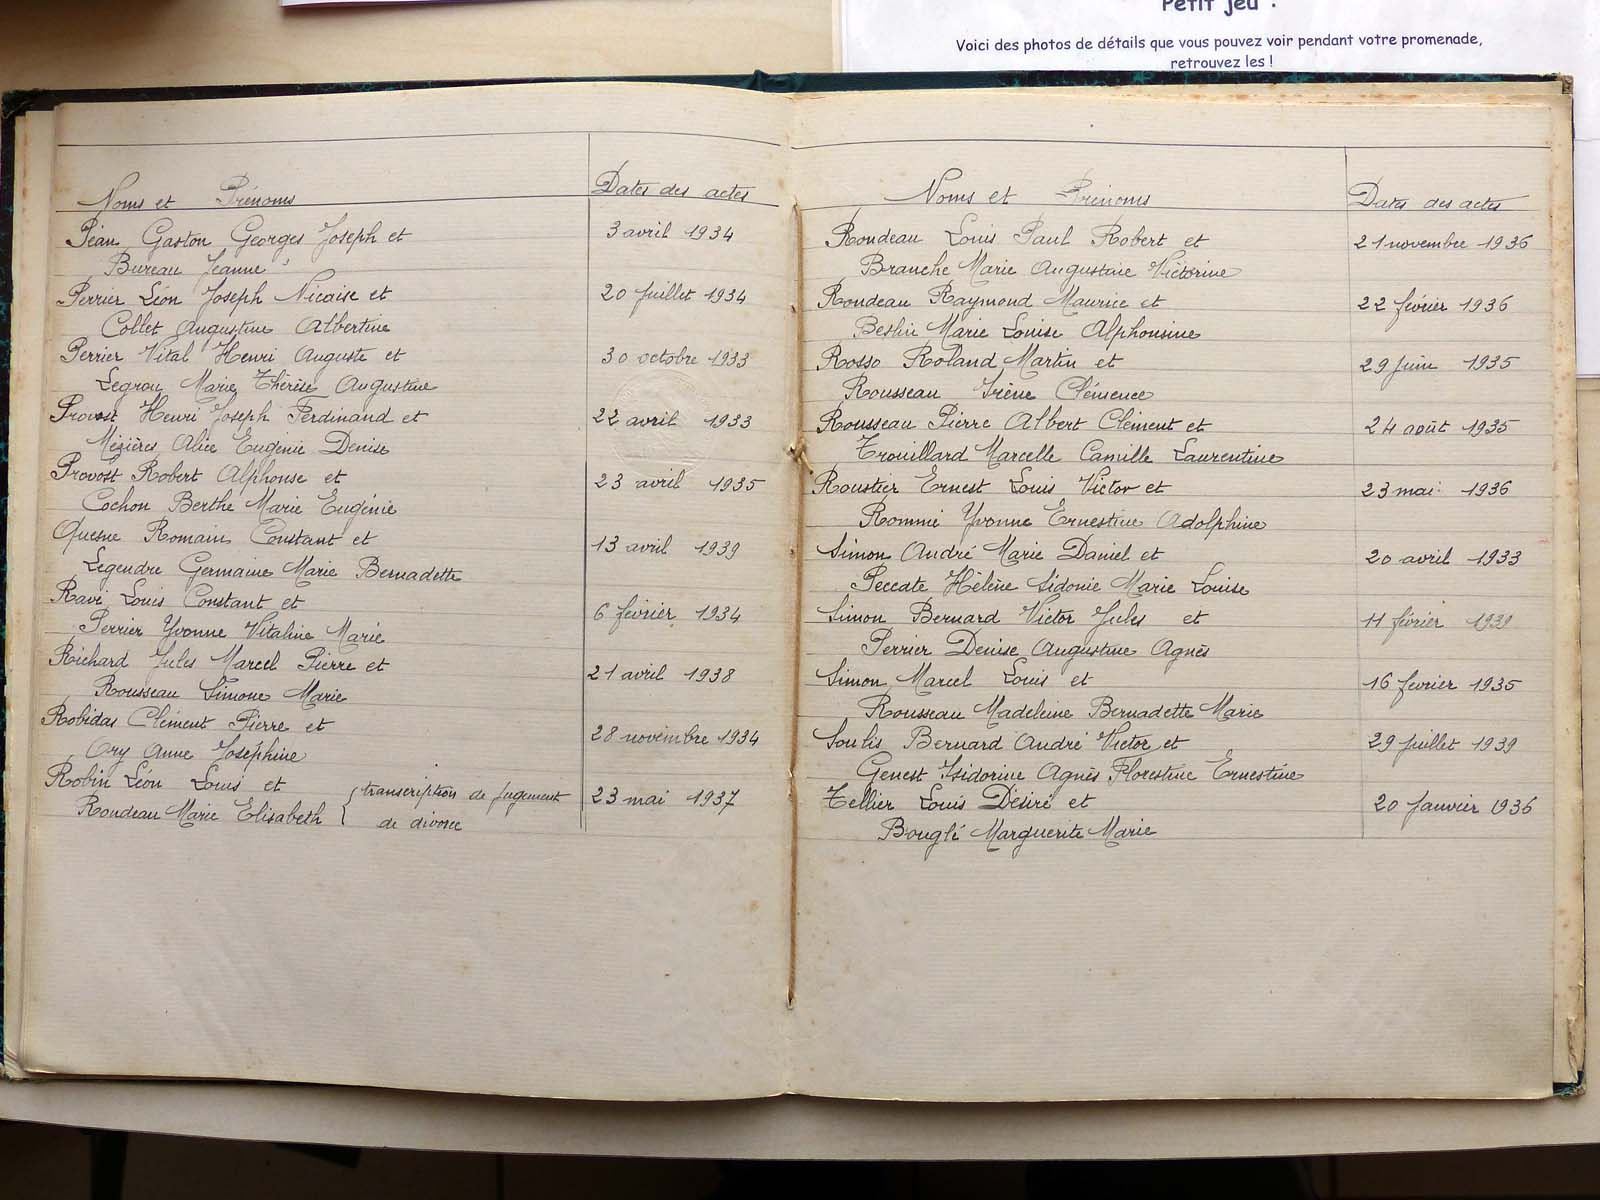 Petit jeu :
Voici des photos de détails que vous pouvez voir pendant votre promenade,
retrouvez les !
Noms et Prénoms Dates des actes
Péan Gaston Georges Joseph et 3 avril 1934
Bureau Jeanne
Perrier Léon Joseph Nicaise et 20 Juillet 1934
Collet Augustine Albertine
Perrier Vital Henri Auguste et 30 octobre 1933
Legrou Marie Thérèse Augustine
Provost Henri Joseph Ferdinand et 22 avril 1933
Mézières Alice Eugénie Denise
Provost Robert Alphonse et 23 avril 1935
Cochon Berthe Marie Eugénie
Quesne Romain Constant et 13 avril 1939
Legendre Germaine Marie Bernadette
Ravé Louis Constant et 6 février 1934
Perrier Yvonne Vitaline Marie
Richard Jules Marcel Pierre et 21 avril 1938
Rousseau Simone Marie
Robidas Clément Pierre et 28 novembre 1934
Ory Anne Joséphine
Robin Léon Louis et transcription de jugement 23 mai 1937
Rondeau Marie Elisabeth de divorce
Noms et Prénoms Dates des actes
Rondeau Louis Paul Robert et 21 novembre 1936
Branche Marie Augustine Victorine
Rondeau Raymond Maurice et 22 février 1936
Marie Louise Alphonsine
Rosso Roland Martin et 29 Juin 1935
Rousseau Irène Clémence
Rousseau Pierre Albert Clément et 24 août 1935
Trouillard Marcelle Camille Laurentine
Roustier Ernest Louis Victor et 23 mai 1936
Rommé Yvonne Ernestine Adolphine
Simon André Marie Daniel et 20 avril 1933
Peccate Hélène Sidonie Marie Louise
Simon Bernard Victor Jules et 11 février 1939
Perrier Denise Augustine Agnès
Simon Marcel Louis et 16 février 1935
Rousseau Madeleine Bernadette Marie
Soutis Bernard André Victor et 29 Juillet 1939
Genest Isidorine Agnès Florestine Ernestine
Tellier Louis Désiré et 20 Janvier 1936
Bouglé Marguerite Marie